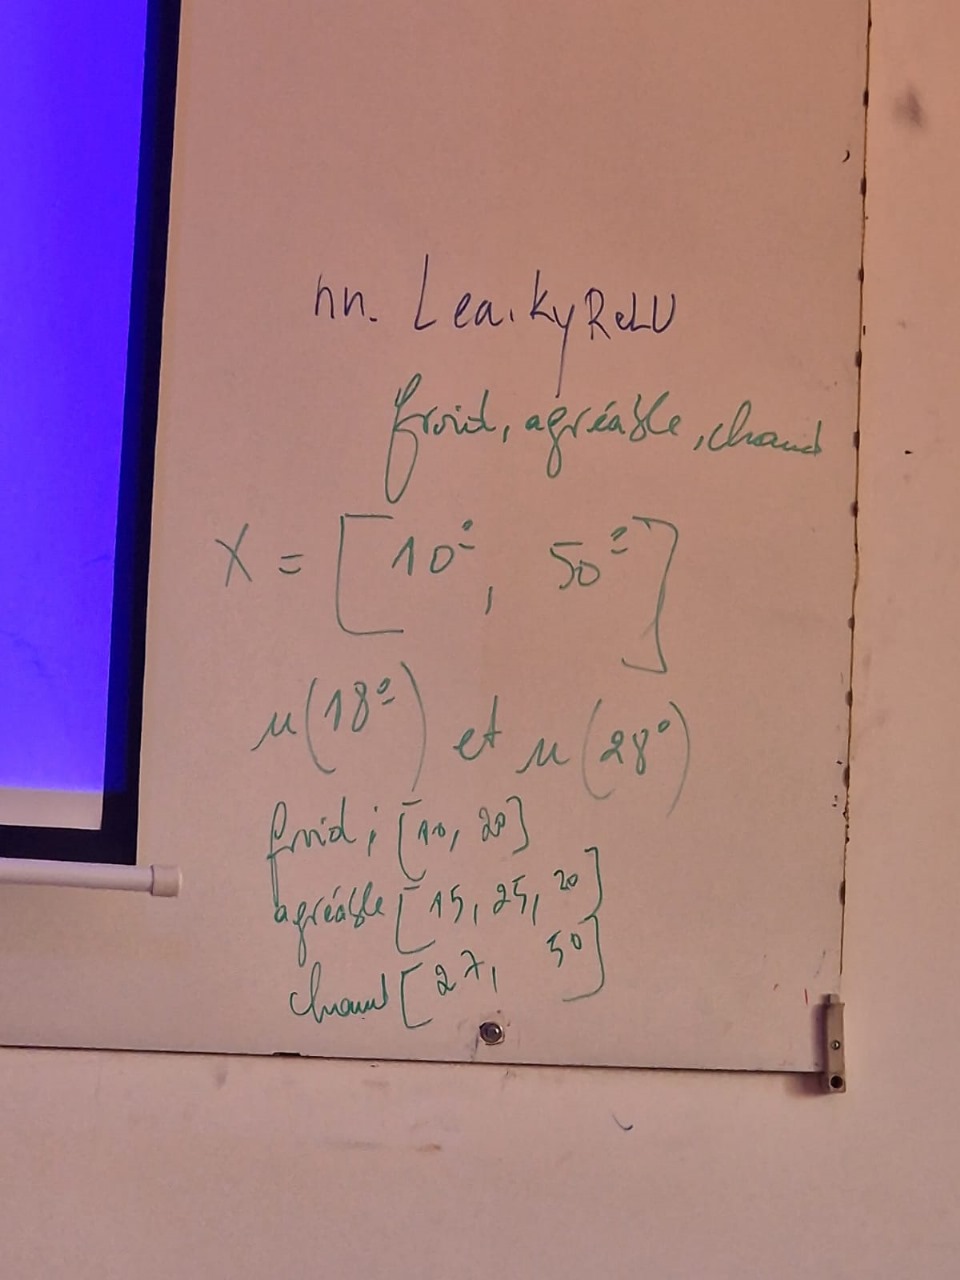 nn. LeakyReLU
froid, agréable, chaud
X = [10°, 50°]
μ(18°) et μ(28°)
froid; [10, 20]
agréable [15, 25, 20]
chaud [27, 50]